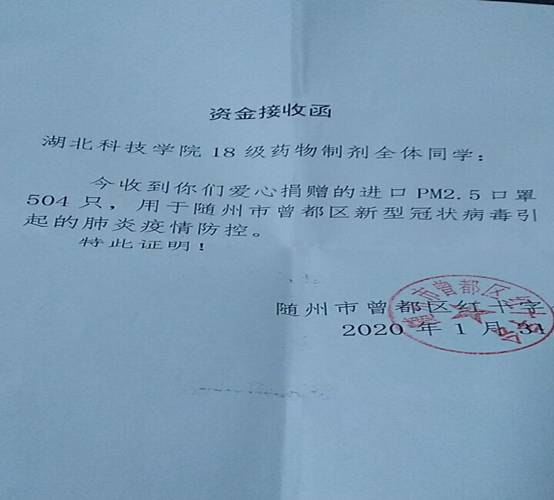 资金接收函
湖北科技学院18级药物制剂全体同学：
今收到你们爱心捐赠的进口PM2.5口罩
504只，用于随州市曾都区新型冠状病毒引
起的肺炎疫情防控。
特此证明！
随州市曾都区红十字
2020年1月31
市曾都区